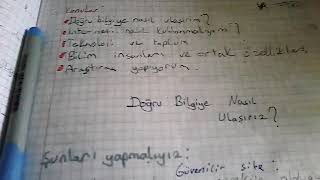 Konular:
Doğru bilgiye nasıl ulaşırım?
İnternet'i nasıl kullanmalıyım?
Teknoloji ve toplum
Bilim insanları ve ortak özellikleri
Araştırma yapıyorum
Doğru Bilgiye Nasıl
Ulaşırız?
Şunları yapmalıyız:
Güvenilir site: